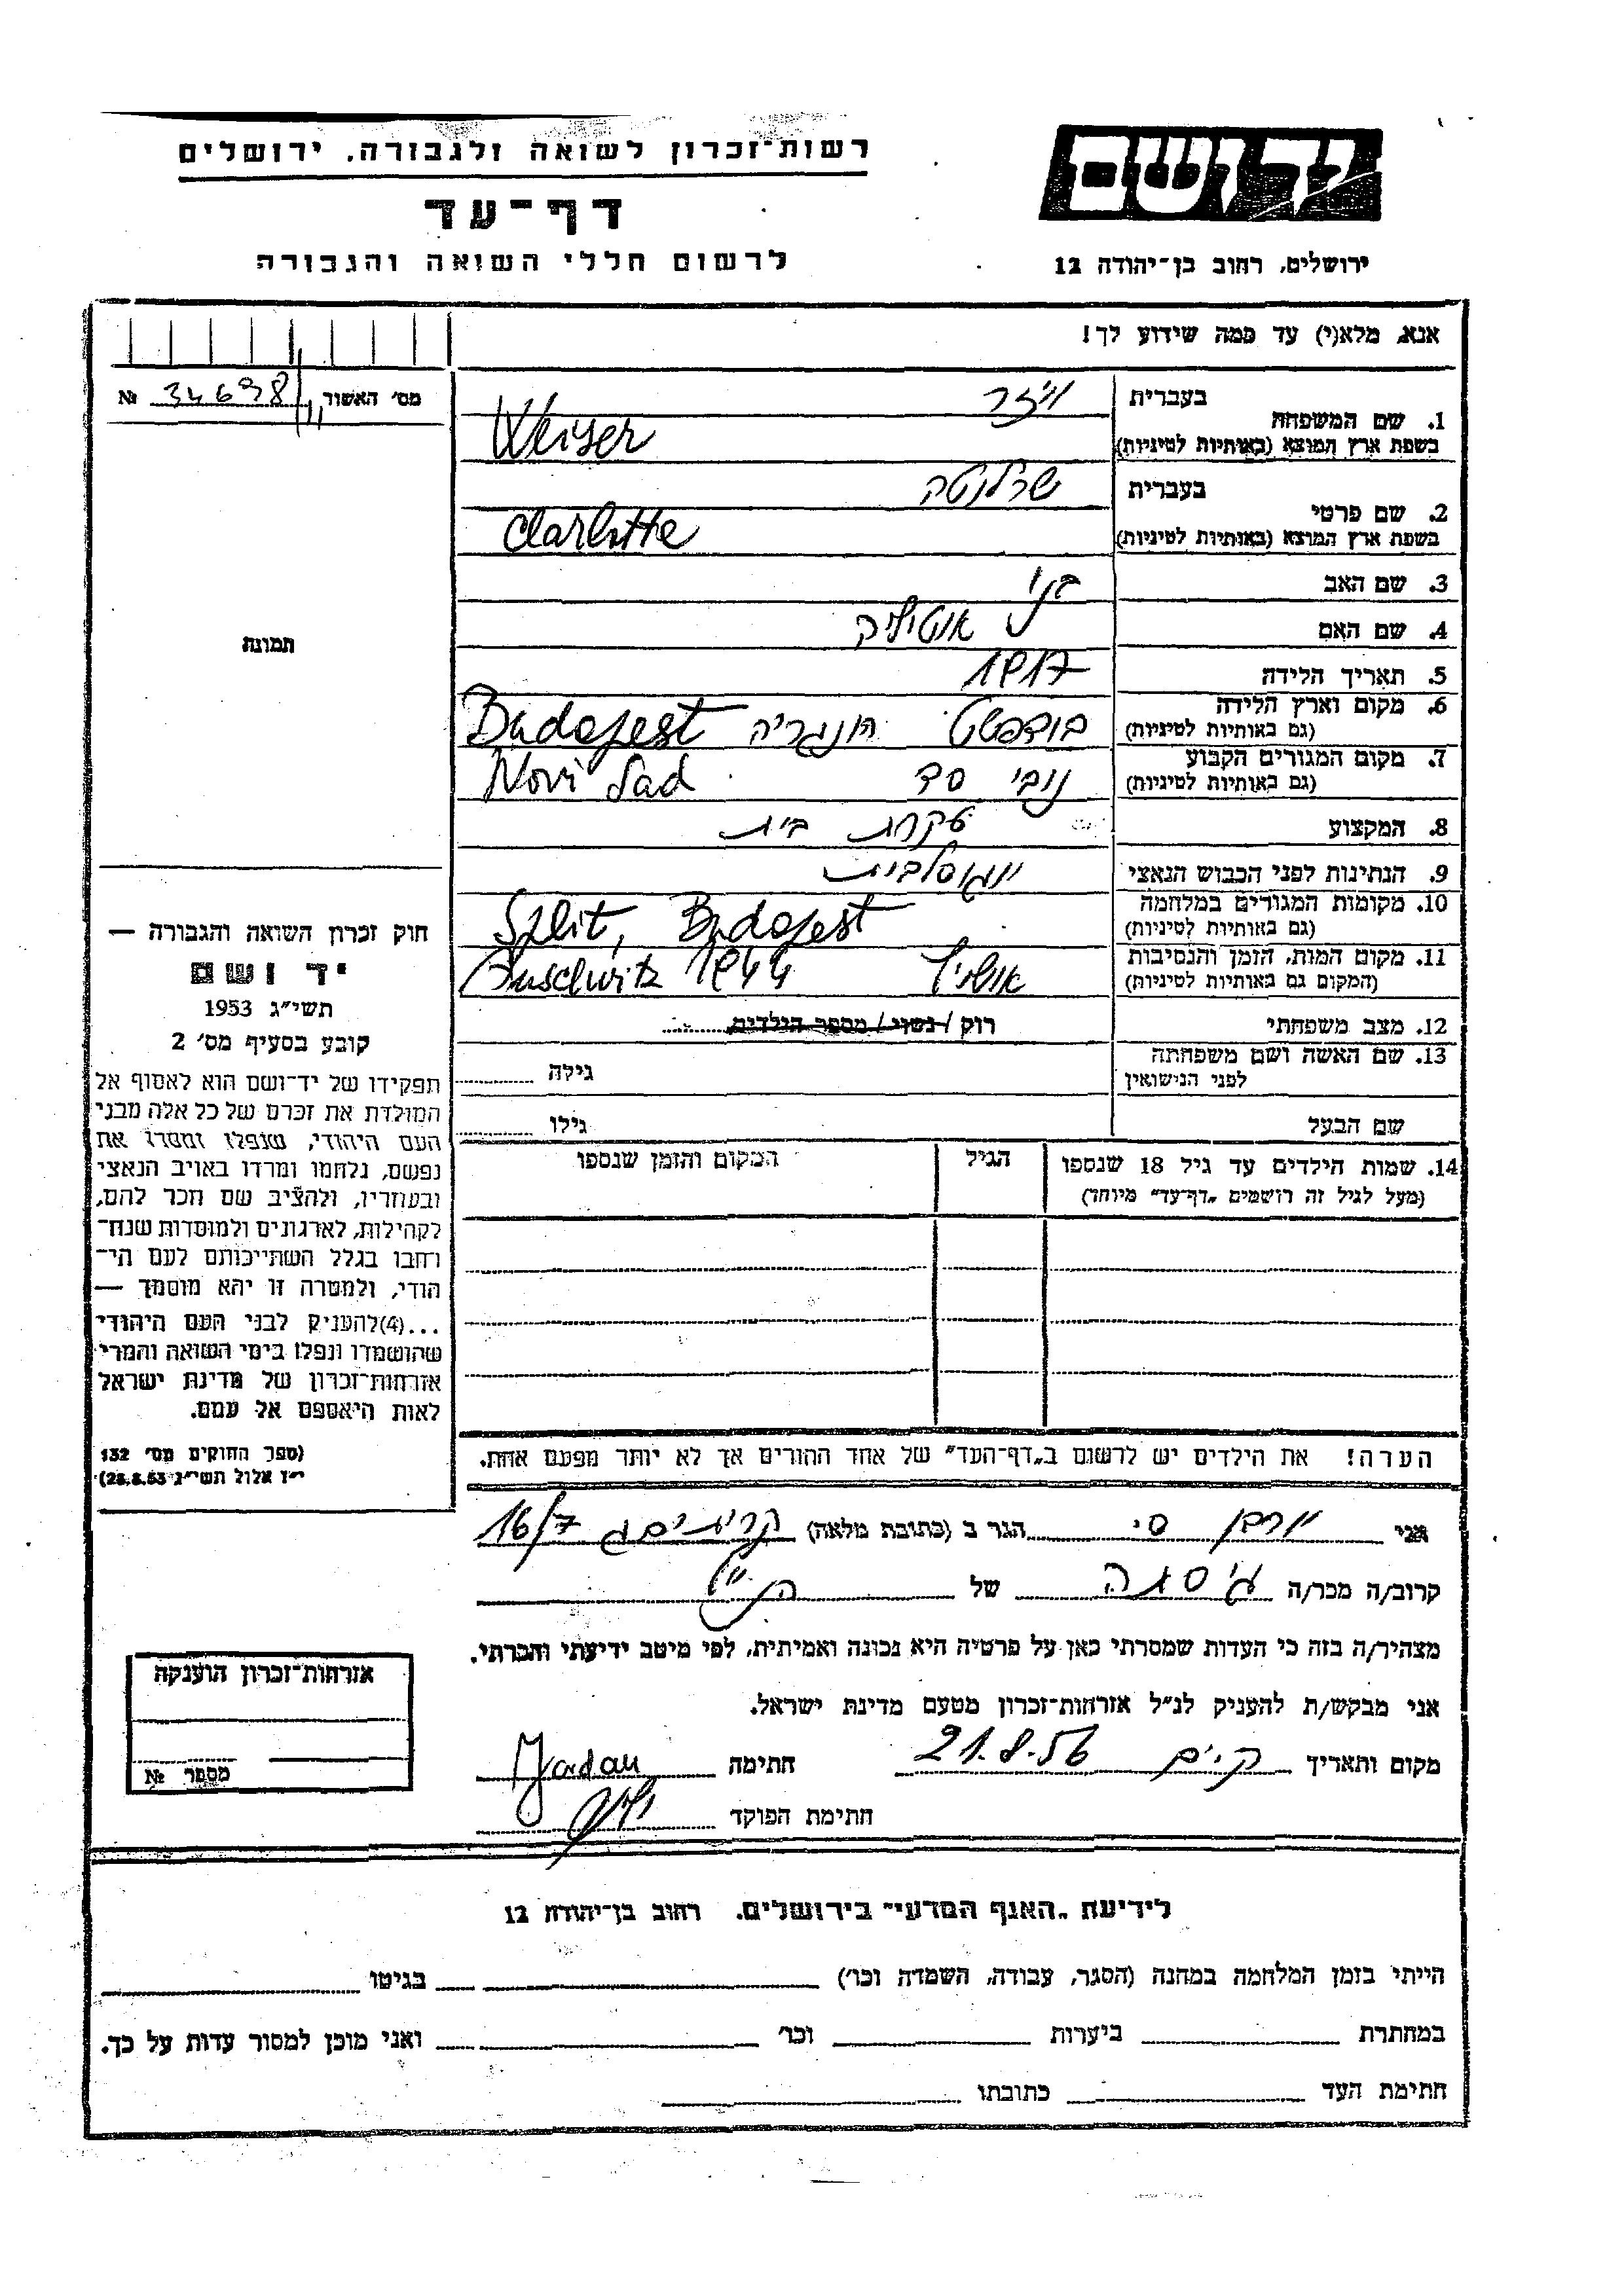 רשות־זכרון לשואה ולגבורה, ירושלים
דף־עד
לרשום חללי השואה והגבורה
ידושם
ירושלים, רחוב בן־יהודה 12
אנא, מלא(י) עד כמה שידוע לך!
מס׳ האשור 34698 №
בעברית
1. שם המשפחה
בשפת ארץ המוצא (באותיות לטיניות) Weiser
בעברית שרלוטה
2. שם פרטי
בשפת ארץ המוצא (באותיות לטיניות) Charlotte
3. שם האב
4. שם האם
5. תאריך הלידה 1917
6. מקום וארץ הלידה בודפשט הונגריה Budapest
(גם באותיות לטיניות)
7. מקום המגורים הקבוע נובי סד Novi Sad
(גם באותיות לטיניות)
8. המקצוע עקרת בית
9. הנתינות לפני הכבוש הנאצי יוגוסלבית
10. מקומות המגורים במלחמה Split, Budapest
(גם באותיות לטיניות)
11. מקום המות, הזמן והנסיבות אושויץ Auschwitz 1944
(המקום גם באותיות לטיניות)
12. מצב משפחתי רוק / נשוי / מספר הילדים
13. שם האשה ושם משפחתה גילה
לפני הנישואין
שם הבעל גילו
14. שמות הילדים עד גיל 18 שנספו הגיל המקום והזמן שנספו
(מעל לגיל זה רושמים „דף־עד״ מיוחד)
הערה! את הילדים יש לרשום ב„דף־העד״ של אחד ההורים אך לא יותר מפעם אחת.
תמונה
חוק זכרון השואה והגבורה —
יד ושם
תשי״ג 1953
קובע בסעיף מס׳ 2
תפקידו של יד־ושם הוא לאסוף אל
המולדת את זכרם של כל אלה מבני
העם היהודי, שנפלו ומסרו את
נפשם, נלחמו ומרדו באויב הנאצי
ובעוזריו, ולהציב שם וזכר להם,
לקהילות, לארגונים ולמוסדות שנח־
רחבו בגלל השתייכותם לעם הי־
הודי, ולמטרה זו יהא מוסמך —
...(4)להעניק לבני העם היהודי
שהושמדו ונפלו בימי השואה והמרי
אזרחות־זכרון של מדינת ישראל
לאות היאספם אל עמם.
(ספר החוקים מס׳ 132
י״ז אלול תשי״ג 28.8.53)
אני הגר ב (כתובת מלאה) 16/7
קרוב/ה מכר/ה גיסה של הנ״ל
מצהיר/ה בזה כי העדות שמסרתי כאן על פרטיה היא נכונה ואמיתית, לפי מיטב ידיעתי והכרתי.
אני מבקש/ת להעניק לנ״ל אזרחות־זכרון מטעם מדינת ישראל.
מקום ותאריך ק.ים 21.8.56 חתימה Jordan
חתימת הפוקד
אזרחות־זכרון הוענקה
מספר №
לידיעת „האגף המדעי״ בירושלים. רחוב בן־יהודה 12
הייתי בזמן המלחמה במחנה (הסגר, עבודה, השמדה וכו׳) בגיטו
במחתרת ביערות וכו׳ ואני מוכן למסור עדות על כך.
חתימת העד כתובתו